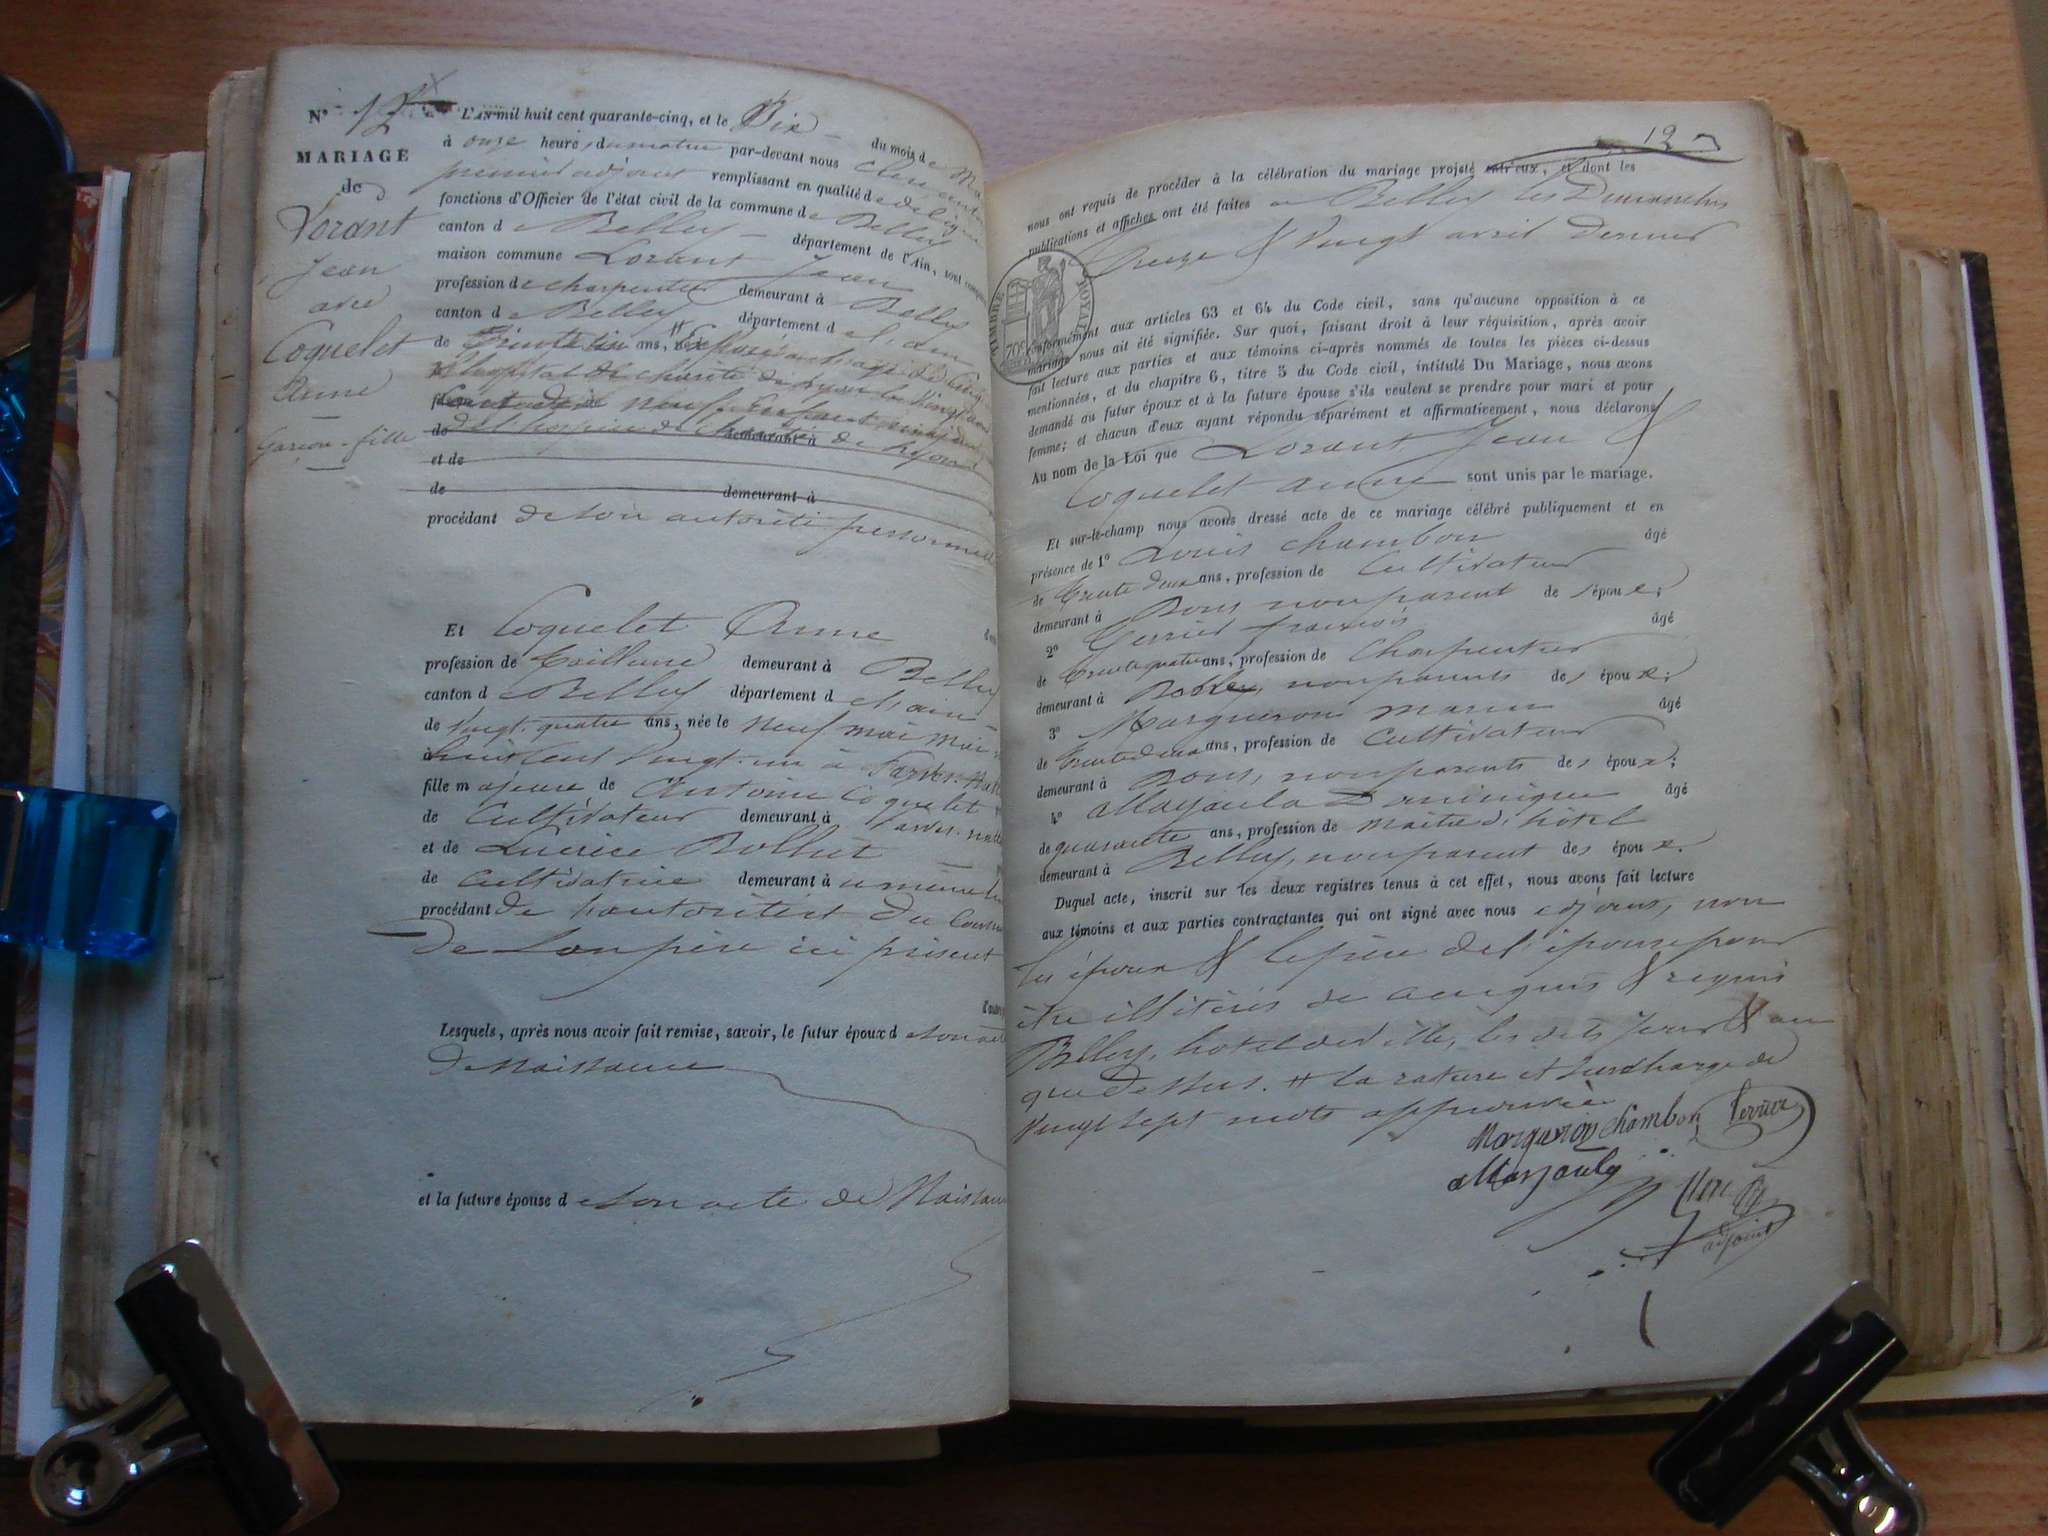 N° 12
MARIAGE
de
Lorant
Jean
avec
Coquelet
Anne
Garçon - fille
L'AN mil huit cent quarante-cinq, et le Dix du mois de
à onze heure du matin par-devant nous
premier adjoint remplissant en qualité de
fonctions d'Officier de l'état civil de la commune de Belley
canton d Belley département de l'Ain, sont
maison commune Lorant Jean
profession de charpentier demeurant à Belley
canton d Belley département d el'ain
de trente six ans, né
l'hopital de charité de Lyon le
neuf Enfant
de l'hospice de charité de demeurant à Lyon
et de
de demeurant à
procédant de son autorité personnelle
Et Coquelet Anne
profession de Tailleuse demeurant à Belley
canton d Belley département d el'ain
de vingt-quatre ans, née le neuf mai mil
à huit cent vingt-un à
fille majeure de Antoine Coquelet
de Cultivateur demeurant à
et de Lucrèce Bollut
de cultivatrice demeurant à
procédant de l'autorité et du
de son père ici présent
Lesquels, après nous avoir fait remise, savoir, le futur époux d e son acte
de Naissance
et la future épouse d e son acte de Naissance
12
nous ont requis de procéder à la célébration du mariage projeté entr'eux, et dont les
publications et affiches ont été faites a Belley les Dimanches
treize & vingt avril dernier
TIMBRE ROYAL
70c
conformément aux articles 63 et 64 du Code civil, sans qu'aucune opposition à ce
mariage nous ait été signifiée. Sur quoi, faisant droit à leur réquisition, après avoir
fait lecture aux parties et aux témoins ci-après nommés de toutes les pièces ci-dessus
mentionnées, et du chapitre 6, titre 5 du Code civil, intitulé Du Mariage, nous avons
demandé au futur époux et à la future épouse s'ils veulent se prendre pour mari et pour
femme; et chacun d'eux ayant répondu séparément et affirmativement, nous déclarons
Au nom de la Loi que Lorant Jean &
Coquelet anne sont unis par le mariage.
Et sur-le-champ nous avons dressé acte de ce mariage célébré publiquement et en
présence de 1° Louis Chambon âgé
de trente deux ans, profession de Cultivateur
demeurant à Bons non parent de s époux;
2° Terrier françois âgé
de trente quatre ans, profession de Charpentier
demeurant à Belley, non parents de s époux;
3° Margueron marin âgé
de trente deux ans, profession de Cultivateur
demeurant à Bons, non parents de s époux;
4° Marjoula Dominique âgé
de quarante ans, profession de maître d'hôtel
demeurant à Belley, non parent de s époux.
Duquel acte, inscrit sur les deux registres tenus à cet effet, nous avons fait lecture
aux témoins et aux parties contractantes qui ont signé avec nous adjoint, non
les époux & le père de l'épouse pour
être illitérés de ce enquis & requis
Belley, hotel de ville, les dits jour & an
que dessus. # la rature et surcharge de
vingt sept mots approuvée
Marguron Chambon Terrier
Marjoula
adjoint